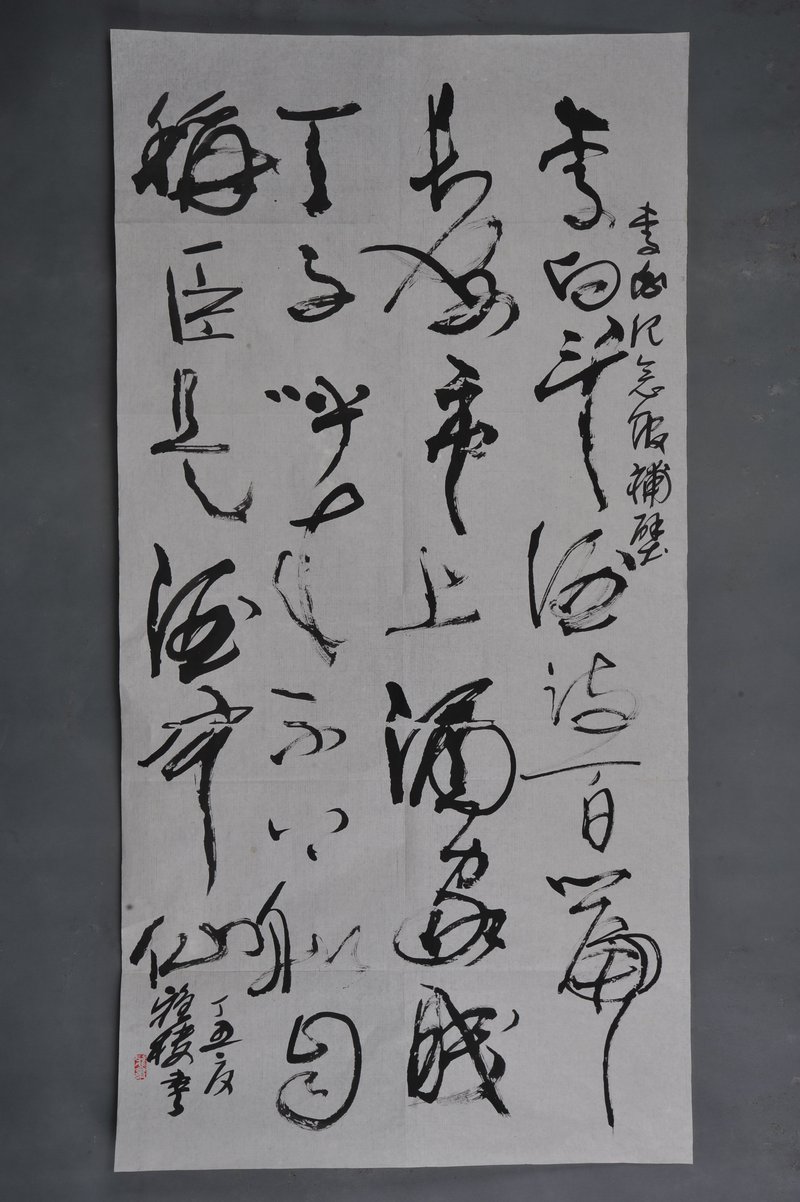 李白纪念馆补壁
李白斗酒诗百篇
长安市上酒家眠
天子呼来不上船自
称臣是酒中仙
丁丑夏
书